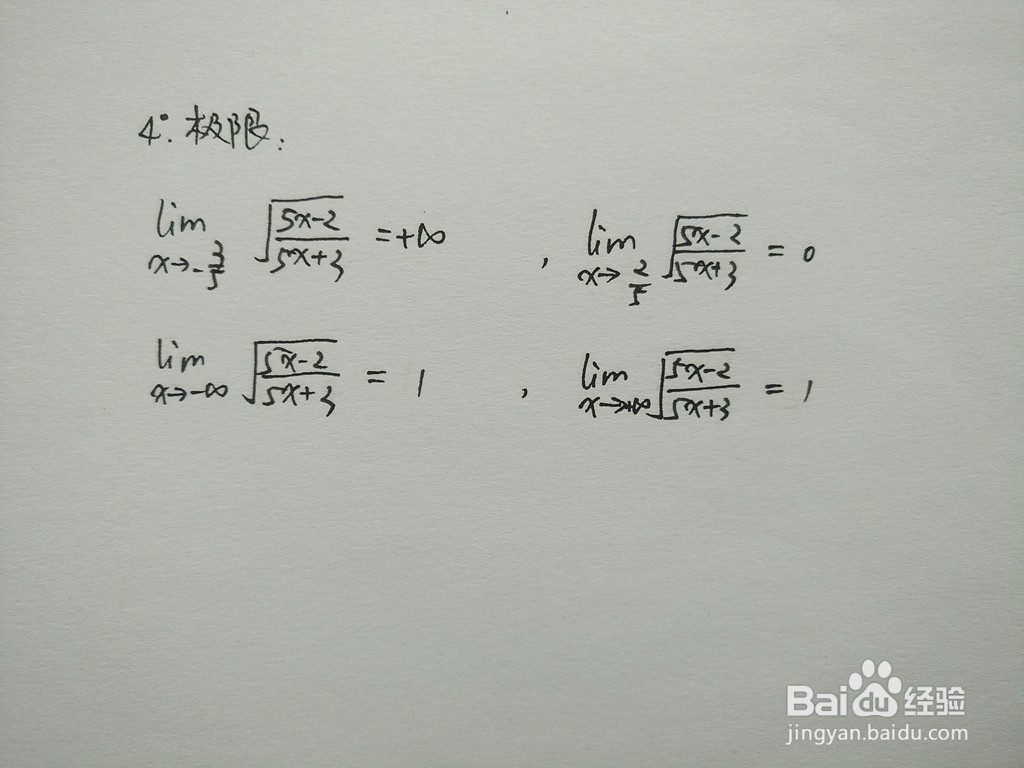 4°. 极限:
lim x→-3/5 √((5x-2)/(5x+3)) = +∞ , lim x→2/5 √((5x-2)/(5x+3)) = 0
lim x→-∞ √((5x-2)/(5x+3)) = 1 , lim x→+∞ √((5x-2)/(5x+3)) = 1
Baidu 经验
jingyan.baidu.com